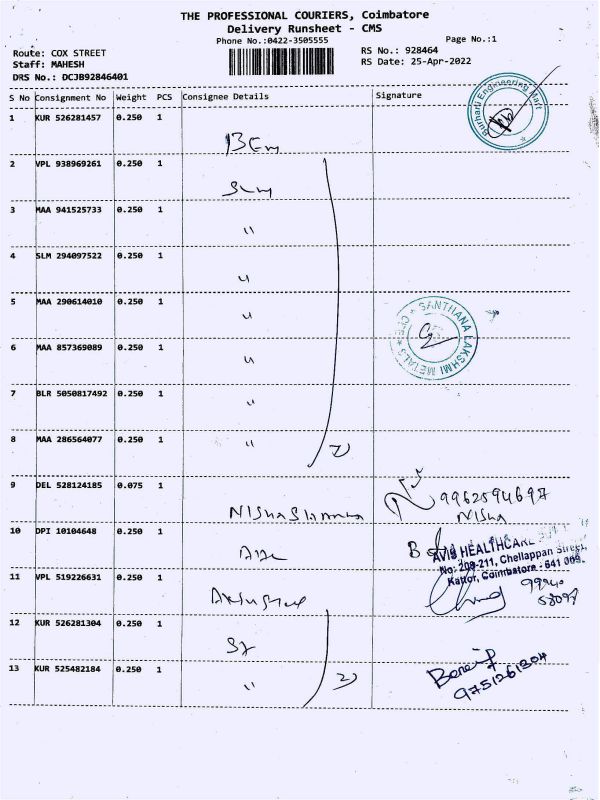 THE PROFESSIONAL COURIERS, Coimbatore
Delivery Runsheet - CMS
Phone No.:0422-3505555
Page No.:1
Route: COX STREET
RS No.: 928464
Staff: MAHESH
RS Date: 25-Apr-2022
DRS No.: DCJB92846401
S No Consignment No Weight PCS Consignee Details Signature
1 KUR 526281457 0.250 1
Burhani Engineering Mart
2 VPL 938969261 0.250 1
3 MAA 941525733 0.250 1
"
4 SLM 294097522 0.250 1
"
5 MAA 290614010 0.250 1
"
SANTHANA LAKSHMI METALS ★ CPC ★
6 MAA 857369089 0.250 1
"
7 BLR 5050817492 0.250 1
"
8 MAA 286564077 0.250 1
" 7
9 DEL 528124185 0.075 1
9962594697
Nisha Sharma Nisha
10 DPI 10104648 0.250 1
AVIS HEALTHCARE
No: 209-211, Chellappan Street,
Kattor, Coimbatore - 641 009.
11 VPL 519226631 0.250 1
99940
58097
12 KUR 526281304 0.250 1
13 KUR 525482184 0.250 1
" 2
9751261304